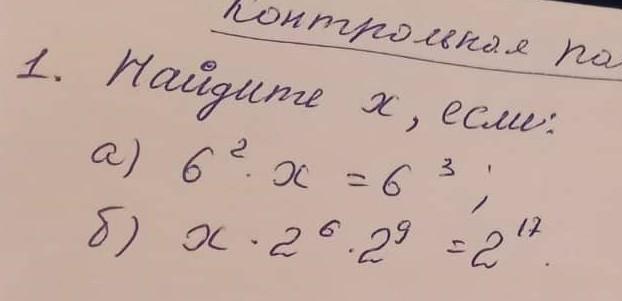 Контрольная ра
1. Найдите x, если:
а) 6² · x = 6³;
б) x · 2⁶ · 2⁹ = 2¹⁷.